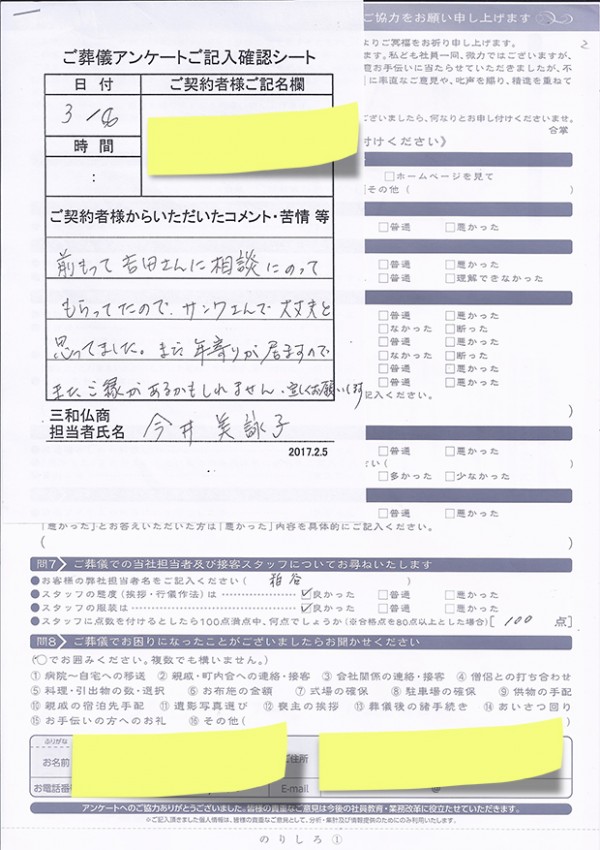 ご協力をお願い申し上げます
2
よりご冥福をお祈り申し上げます。
ご葬儀アンケートご記入確認シート
ます。私ども社員一同、微力ではございますが、
お手伝いに当たらせていただきましたが、不
に率直なご意見や、叱声を賜り、精進を重ねて
日 付
ご契約者様ご記名欄
3 /
時 間
:
ざいましたら、何なりとお申し付けくださいませ。
合掌
付けください》
□ホームページを見て
その他 ( )
ご契約者様からいただいたコメント・苦情 等
□普通 □悪かった
前もって吉田さんに相談にのって
□普通 □悪かった
□普通 □理解できなかった
もらってたので、サンワさんで大丈夫と
□普通 □悪かった
□なかった □断った
思ってました。まだ年寄りが居ますので
□普通 □悪かった
□なかった □断った
□普通 □悪かった
またご縁があるかもしれません。宜しくお願いします
□普通 □悪かった
記入ください。
)
三和仏商
担当者氏名 今井 美詠子
2017.2.5
□普通 □悪かった
い( )
□多かった □少なかった
□普通 □悪かった
「悪かった」とお答えいただいた方は「悪かった」内容を具体的にご記入ください。
( )
問7 ご葬儀での当社担当者及び接客スタッフについてお尋ねいたします
●お客様の弊社担当者名をご記入ください( 粕谷 )
●スタッフの態度(挨拶・行儀作法)は ☑良かった □普通 □悪かった
●スタッフの服装は ☑良かった □普通 □悪かった
●スタッフに点数を付けるとしたら100点満点中、何点でしょうか(※合格点を80点以上とした場合)[ 100 点]
問8 ご葬儀でお困りになったことがございましたらお聞かせください
(○でお囲みください。複数でも構いません。)
①病院～自宅への移送 ②親戚・町内会への連絡・接客 ③会社関係の連絡・接客 ④僧侶との打ち合わせ
⑤料理・引出物の数・選択 ⑥お布施の金額 ⑦式場の確保 ⑧駐車場の確保 ⑨供物の手配
⑩親戚の宿泊先手配 ⑪遺影写真選び ⑫喪主の挨拶 ⑬葬儀後の諸手続き ⑭あいさつ回り
⑮お手伝いの方へのお礼 ⑯その他( )
ふりがな
お名前
ご住所
お電話番
E-mail
アンケートへのご協力ありがとうございました。皆様の貴重なご意見は今後の社員教育・業務改革に役立たせていただきます。
※ご記入頂きました個人情報は、皆様の貴重なご意見として、分析・集計及び情報提供のためにのみ利用いたします。
のりしろ①